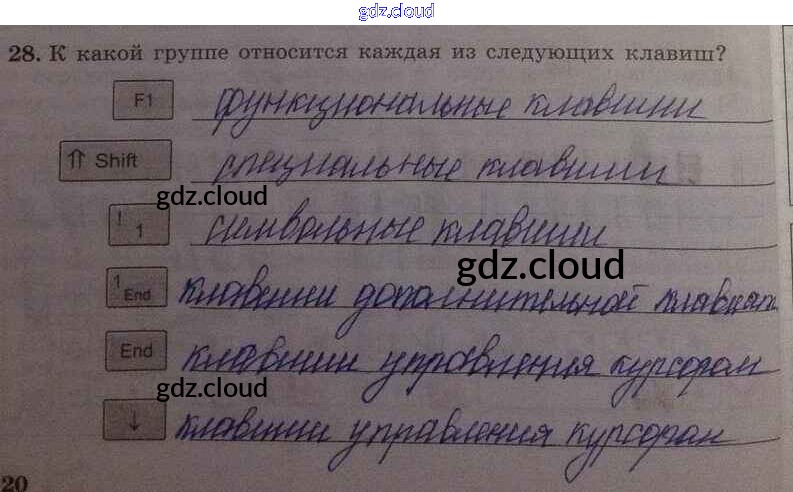 gdz.cloud
28. К какой группе относится каждая из следующих клавиш?
F1 функциональные клавиши
⇑ Shift специальные клавиши
gdz.cloud
! 1 символьные клавиши
gdz.cloud
1 End клавиши дополнительной клавиат.
End клавиши управления курсором
gdz.cloud
↓ клавиши управления курсором
20